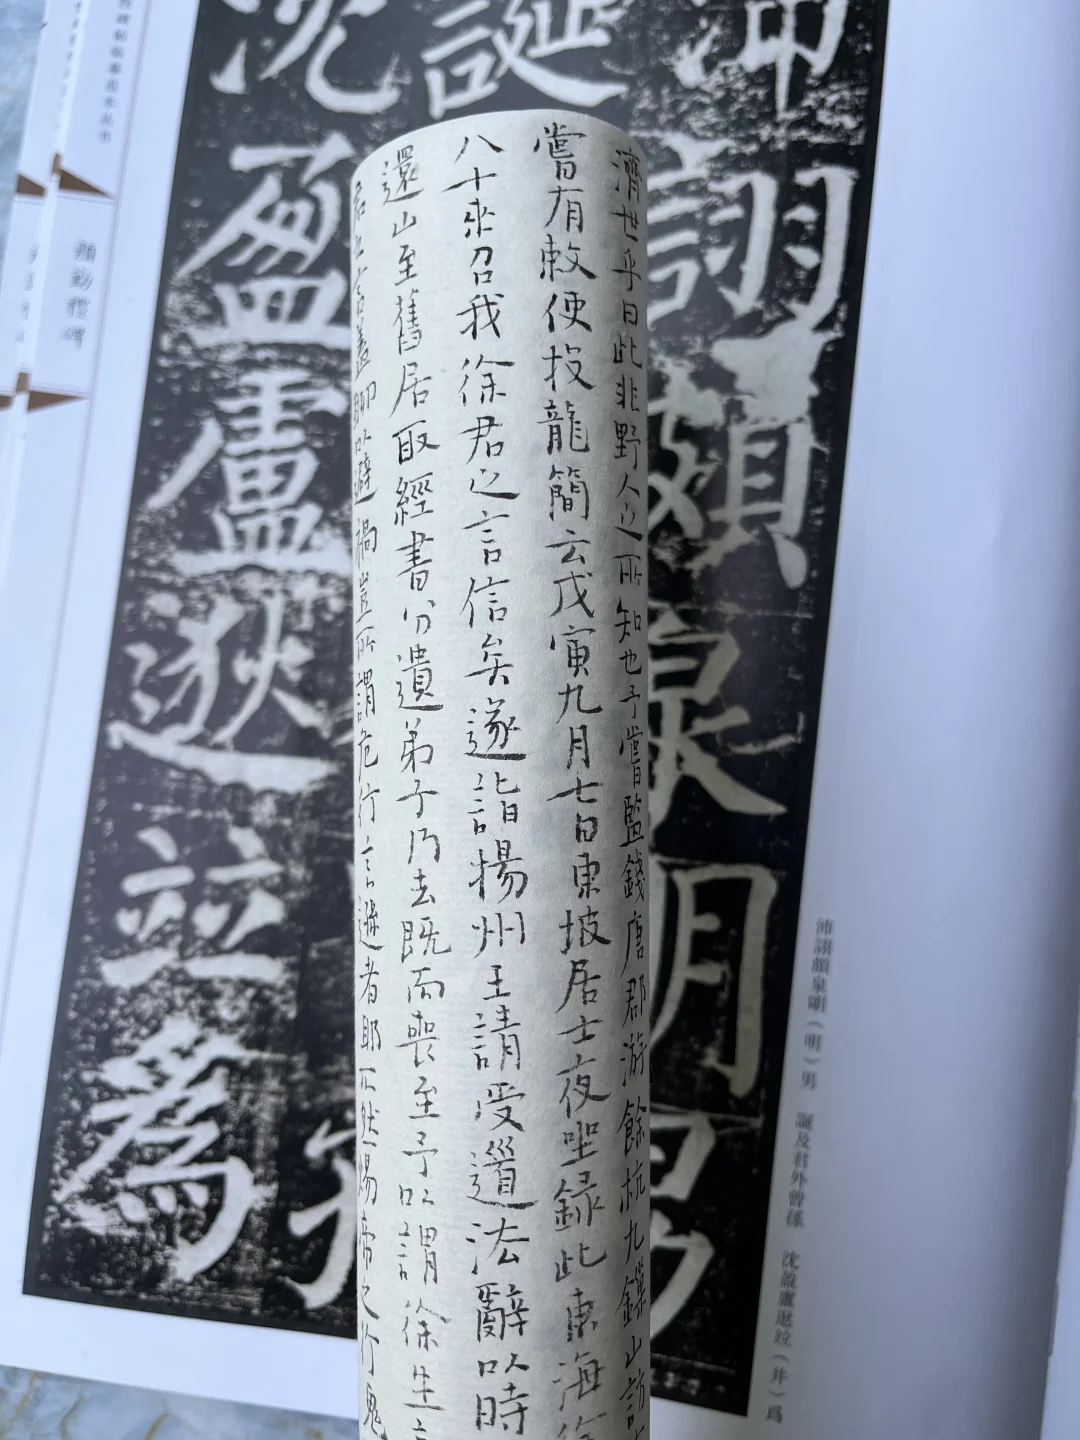 沛詡頗泉明男
誕
沈盈盧逖竝爲
濟世乎曰此非野人之所知也予嘗監錢唐郡游餘杭九鏁山訪
嘗有敕使投龍簡云戊寅九月七日東坡居士夜坐録此東海徐
八十來召我徐君之言信矣遂詣揚州王請受道法辭以時
還山至舊居取經書分遺弟子乃去既而喪至予以謂徐生
君之言蓋聊以避禍豈所謂危行言遜者耶不然煬帝之行鬼
沛詡頗泉明（明）男 誕及君外曾孫 沈盈盧逖竝（并）爲
顏勤禮碑